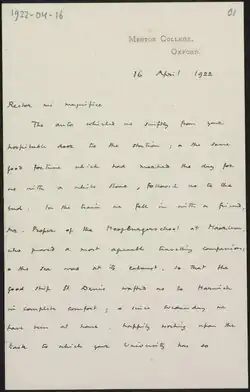 1922-04-16
MERTON COLLEGE,
OXFORD.
16 April 1922
Rector mi magnifice
The auto whirled us swiftly from your
hospitable door to the station, & the same
good fortune which had marked the day for
us with a white stone, followed us to the
end. In the train we fell in with a friend,
Mr. of the Hoogburgerschool at
who proved a most agreeable travelling companion;
& the sea was at its calmest, so that the
good ship St Denis wafted us to Harwich
in complete comfort; & since Wednesday we
have been at home, happily working upon the
task to which your University has so